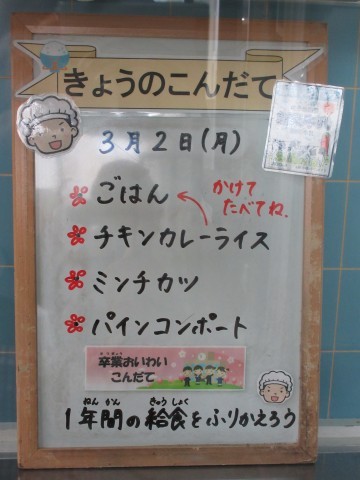 きょうのこんだて
3月2日(月)
ごはん
かけて
たべてね。
チキンカレーライス
ミンチカツ
パインコンポート
卒業おいわい
こんだて
ねん かん きゅう しょく
1年間の給食をふりかえろう